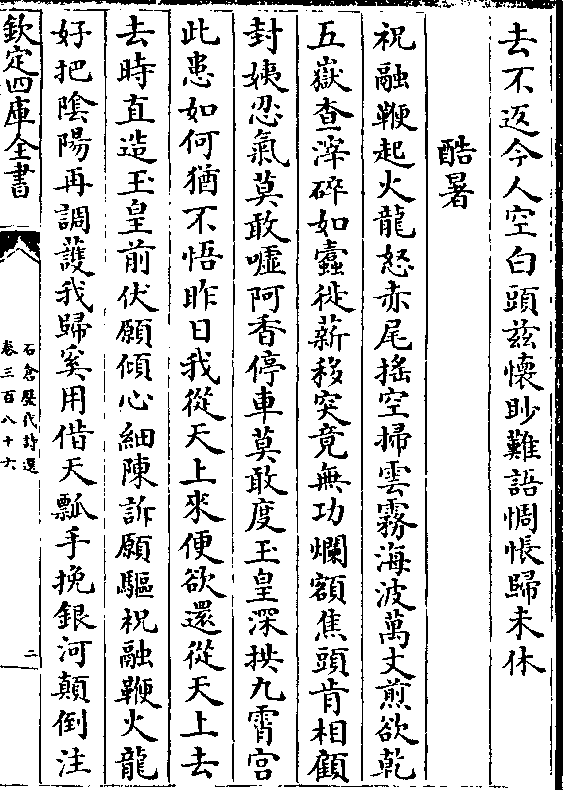 去不返今人空白頭兹懷眇難語惆悵歸未休
酷暑
祝融鞭起火龍怒赤尾搖空掃雲霧海波萬丈煎欲乾
五嶽查滓碎如蠹徙薪移突竟無功爛額焦頭肯相顧
封姨忍氣莫敢噓阿香停車莫敢度玉皇深拱九霄宫
此患如何猶不悟昨日我從天上來便欲還從天上去
去時直造玉皇前伏願傾心細陳訴願驅祝融鞭火龍
好把陰陽再調護我歸奚用借天瓢手挽銀河顛倒注
欽定四庫全書
石倉歷代詩選
卷三百八十六
二